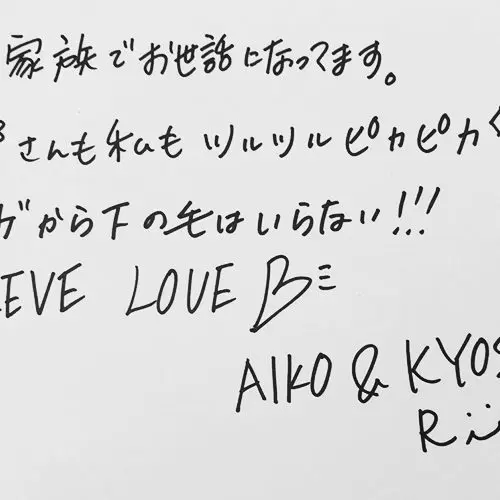 家族でお世話になってます。
さんも私もツルツルピカピカ
から下の毛はいらない!!!
EVE LOVE B
AIKO & KYOS
Rii